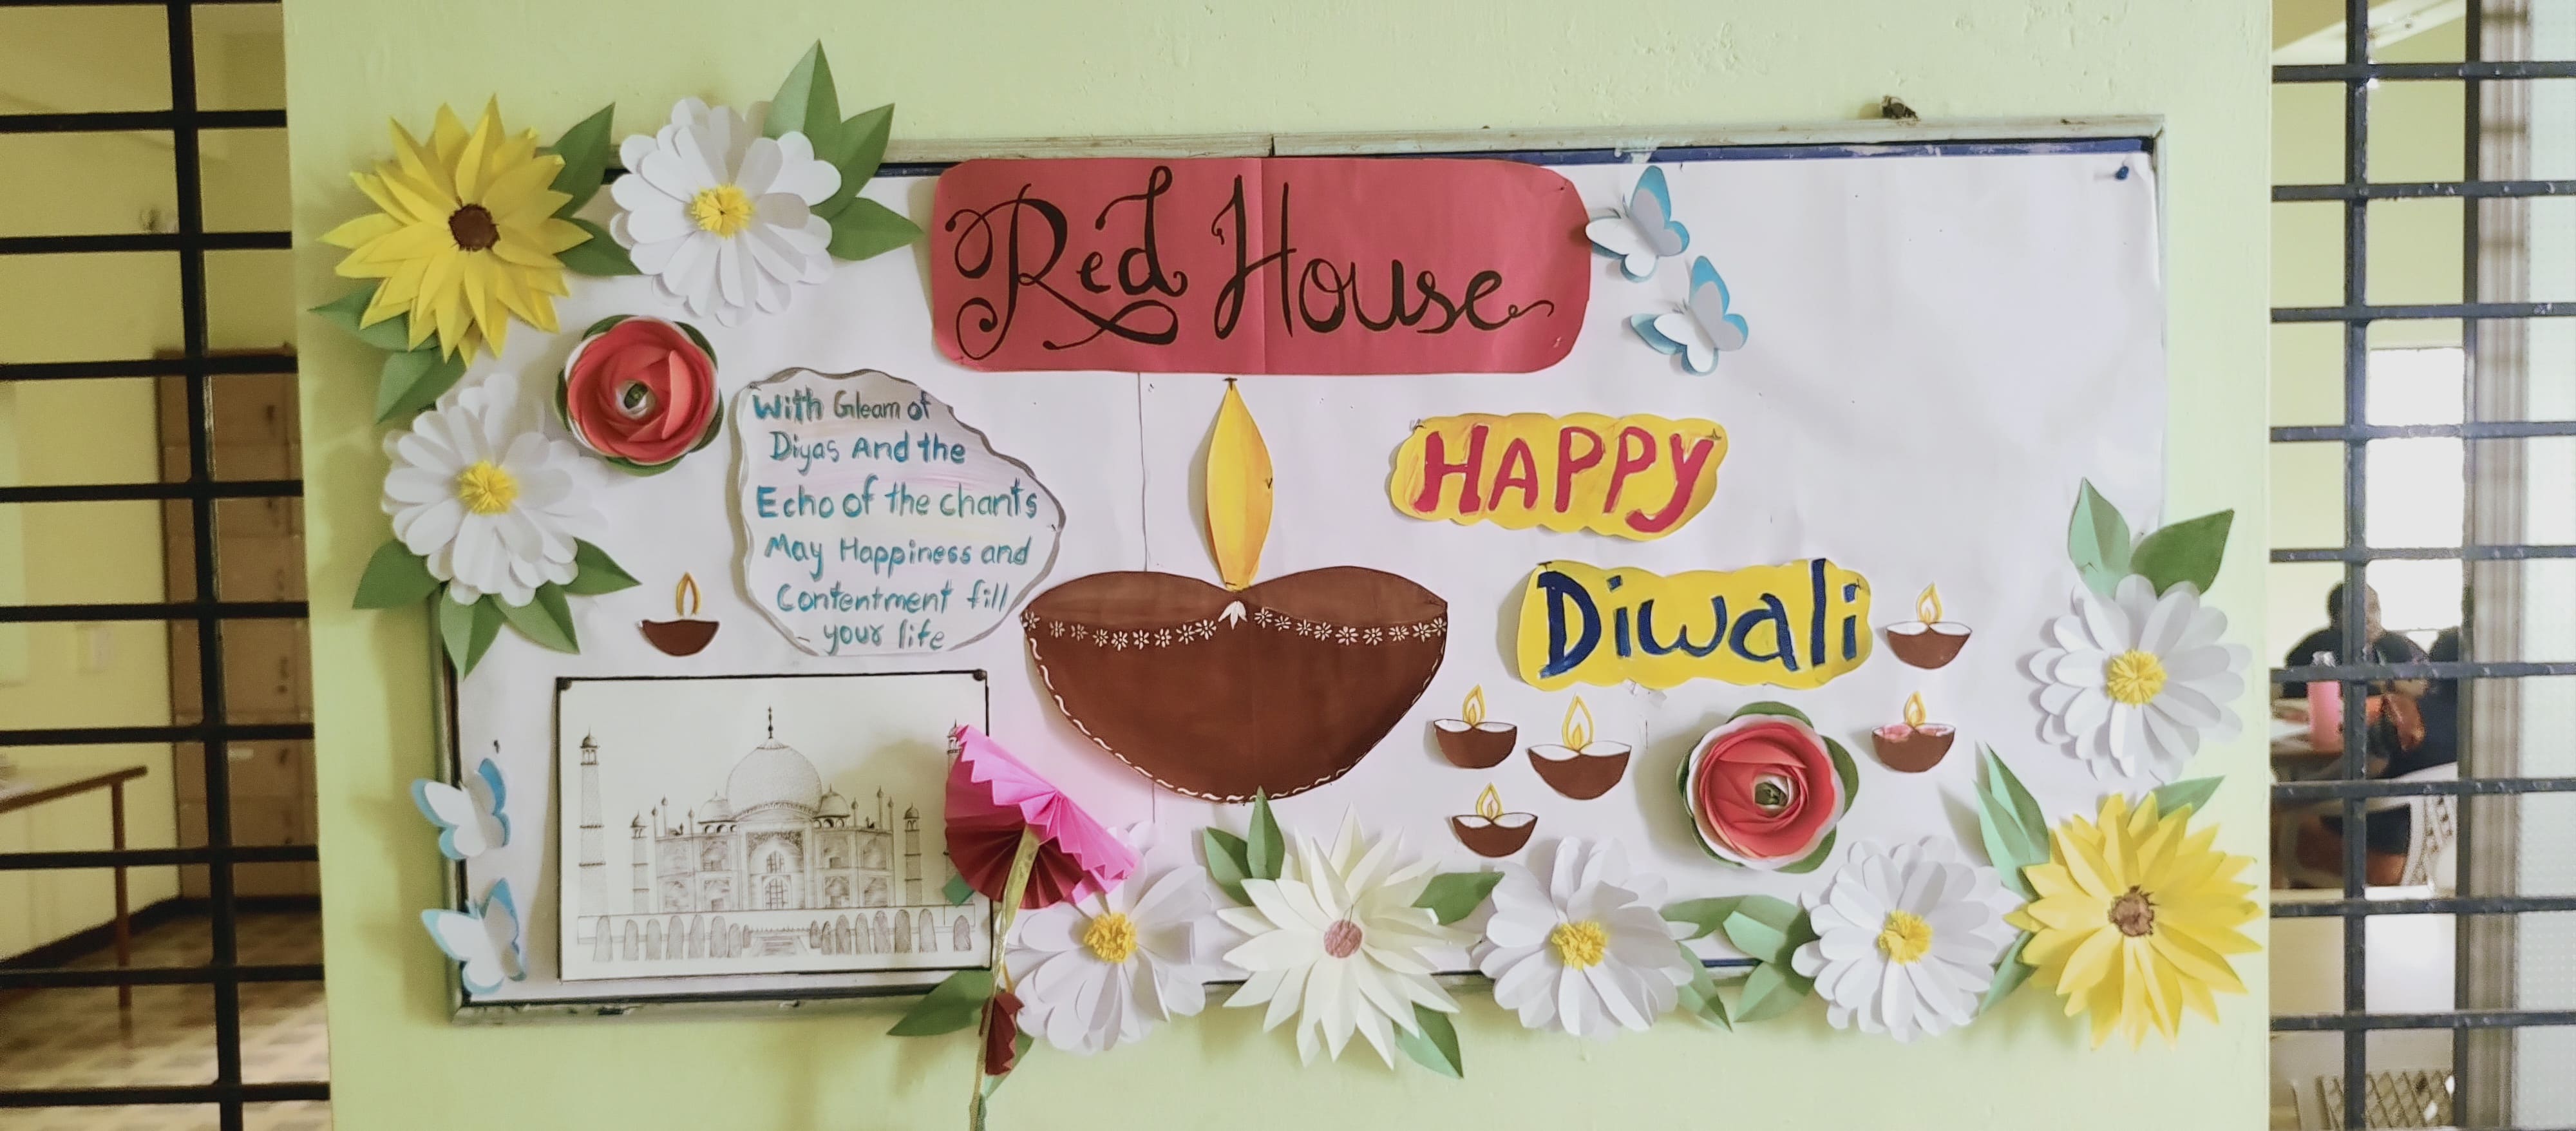 Red House
With Gleam of
Diyas And the
Echo of the chants
May Happiness and
Contentment fill
- your life
HAPPY
Diwali